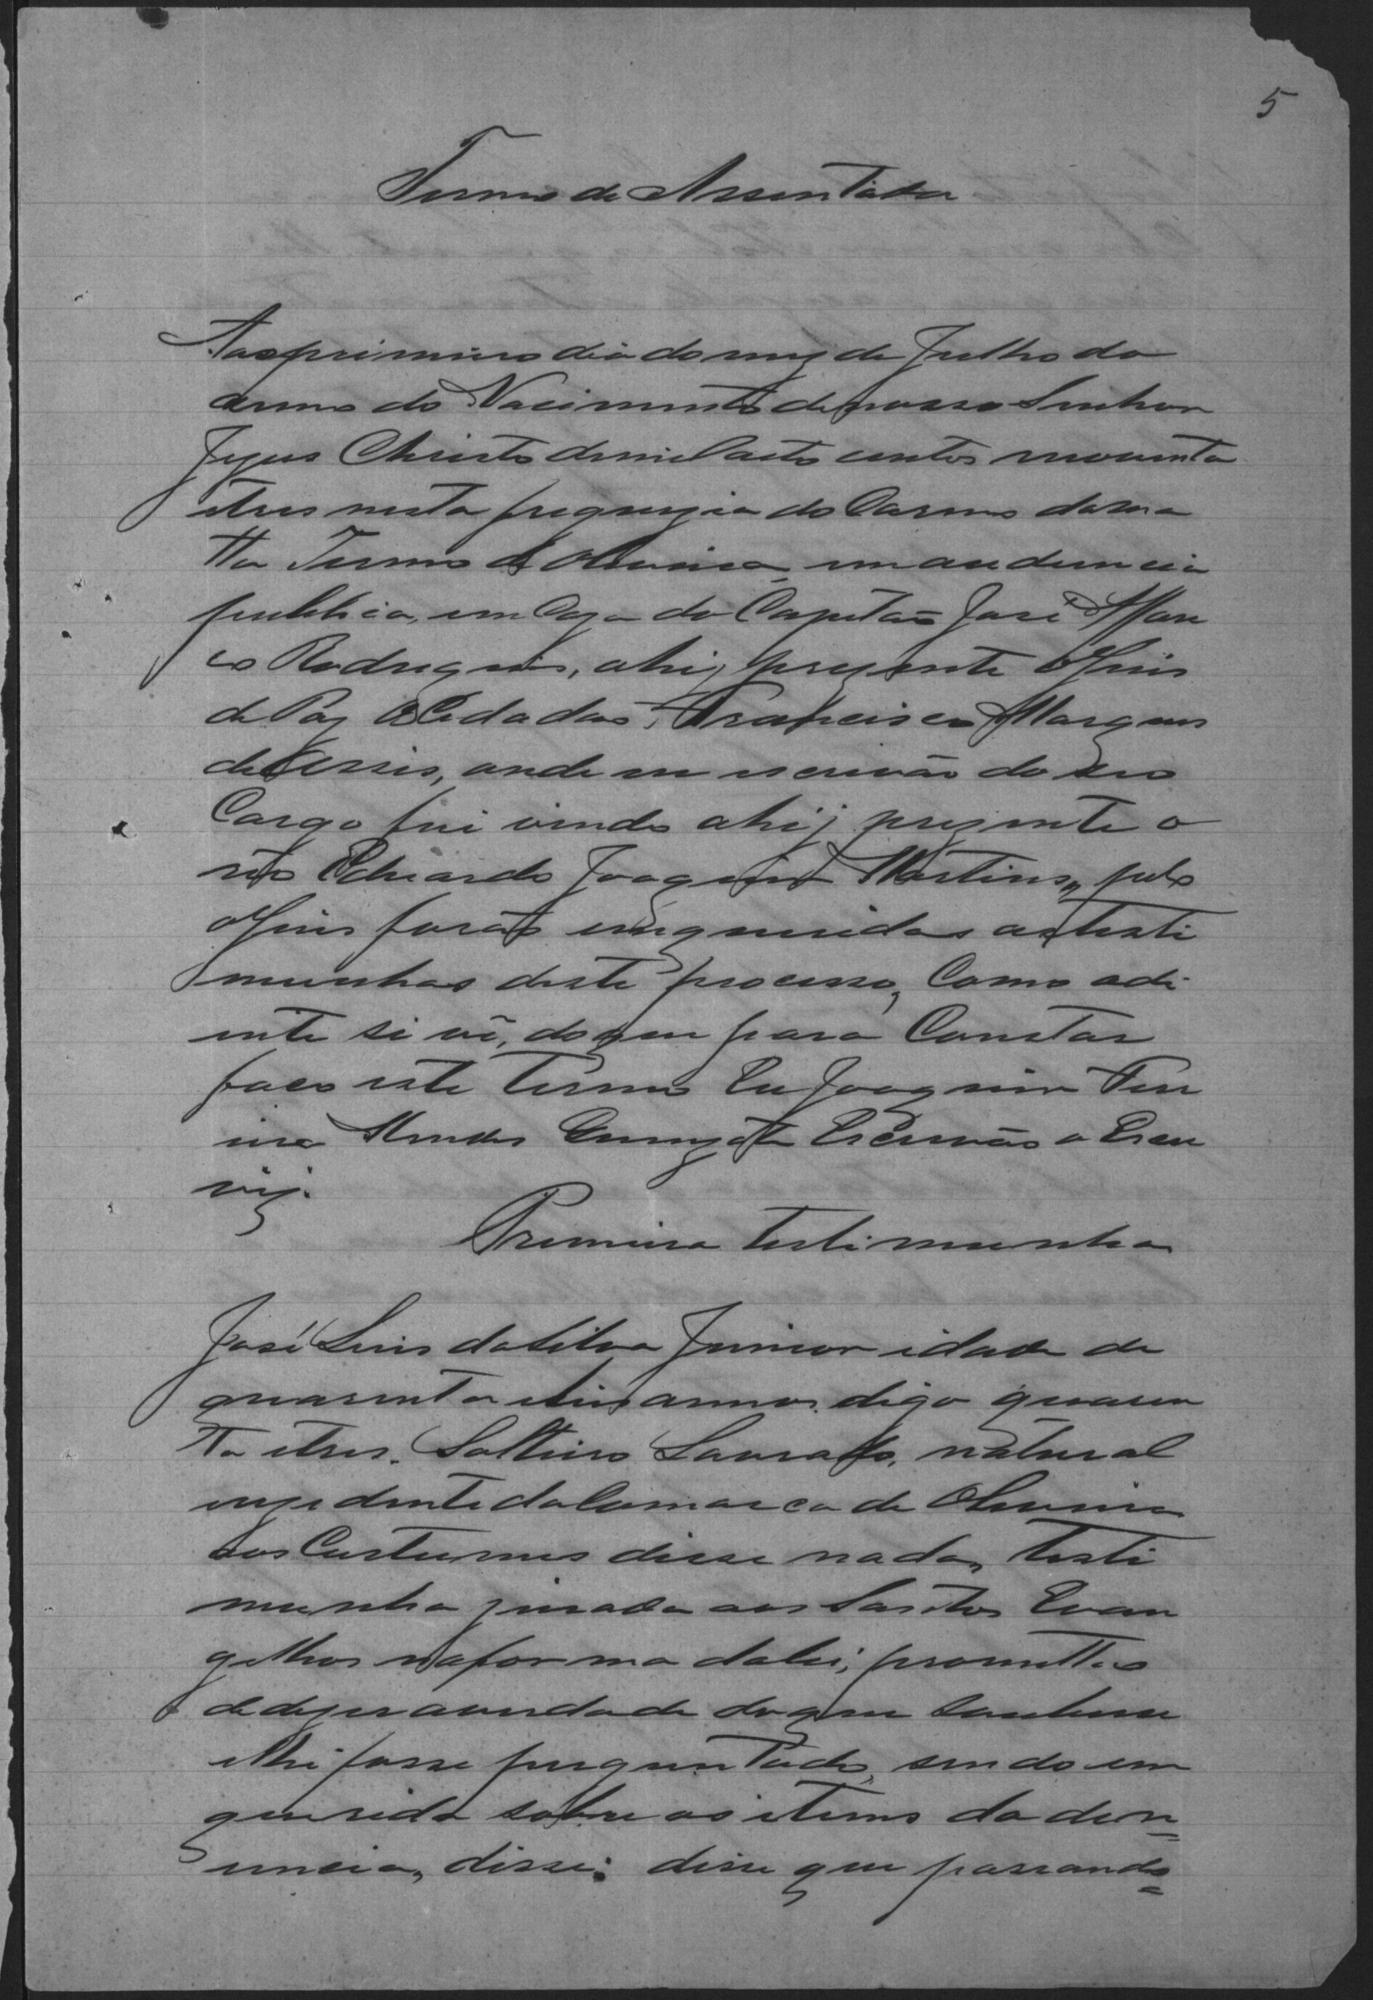 5
Termo de Assentada
Aos primeiro dia do mez de Julho do
anno do Nacimento de nosso Senhor
Jezus Christo de mil oito centos noventa
e tres nesta freguezia do Carmo da ma
tta Termo de Oliveira, em audiencia
publica, em Caza do Capitão José Mar
co Rodrigues, ahij prezente o Juis
de Paz o Cidadão Francisco Marques
de Assis, onde eu escrivão do seo
Cargo fui vindo ahij prezente o
réo Eduardo Joaquim Martins, pelo
o Juis forão inqueridas as testi
munhas deste processo, Como adi
ente si vê, do que para Constar
faco este termo Eu Joaquim Ferr
eira Mendes Escrivão o Escre
vij.
Primeira testimunha
José Luis da Silva Junior idade de
quarenta e seis annos digo quaren
ta e tres. Solteiro Lavrador, natural
e rezidente da Comarca de Oliveira
aos Custumes disse nada, testi
munha jurada aos Santos Evan
gelhos na forma da lei, prometteo
de dizer a verdade do que Soubesse
e lhe fosse preguntado, sendo en
querida sobre os itens da den=
uncia, disse: disse que passando=